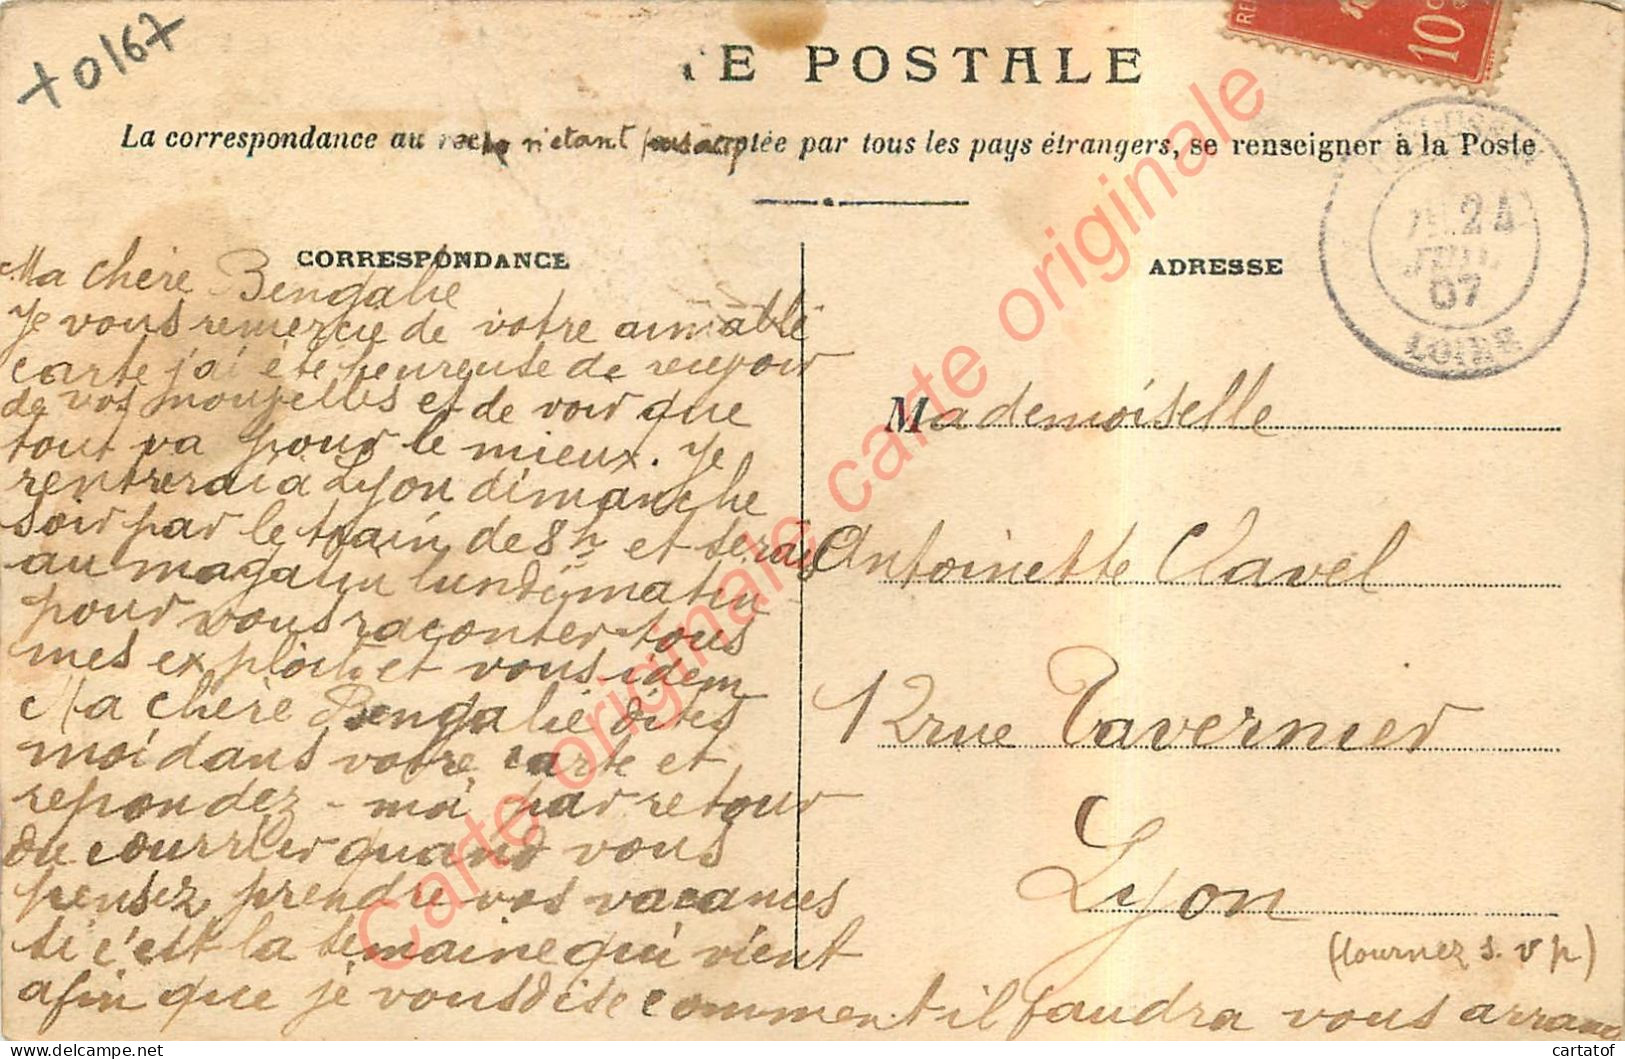 +0167
TE POSTALE
RE
10c
La correspondance au recto n'étant pas acceptée par tous les pays étrangers, se renseigner à la Poste
24
JUIL
07
LOIRE
CORRESPONDANCE
Ma chère Bengalie
Je vous remercie de votre aimable
carte j'ai été heureuse de recevoir
de vos nouvelles et de voir que
tout va pour le mieux. Je
rentrerai à Lyon dimanche
soir par le train de 8h et serais
au magasin lundi matin
pour vous raconter tous
mes exploits et vous idem
Ma chère Bengalie dites
moi dans votre carte et
repondez-moi par retour
du courrier quand vous
pensez prendre vos vacances
si c'est la semaine qui vient
afin que je vous dise comment il faudra vous arran
ADRESSE
Mademoiselle
Antoinette Clavel
12 rue Tavernier
Lyon
(tournez s. v p)
Carte originale carte originale
cartatof